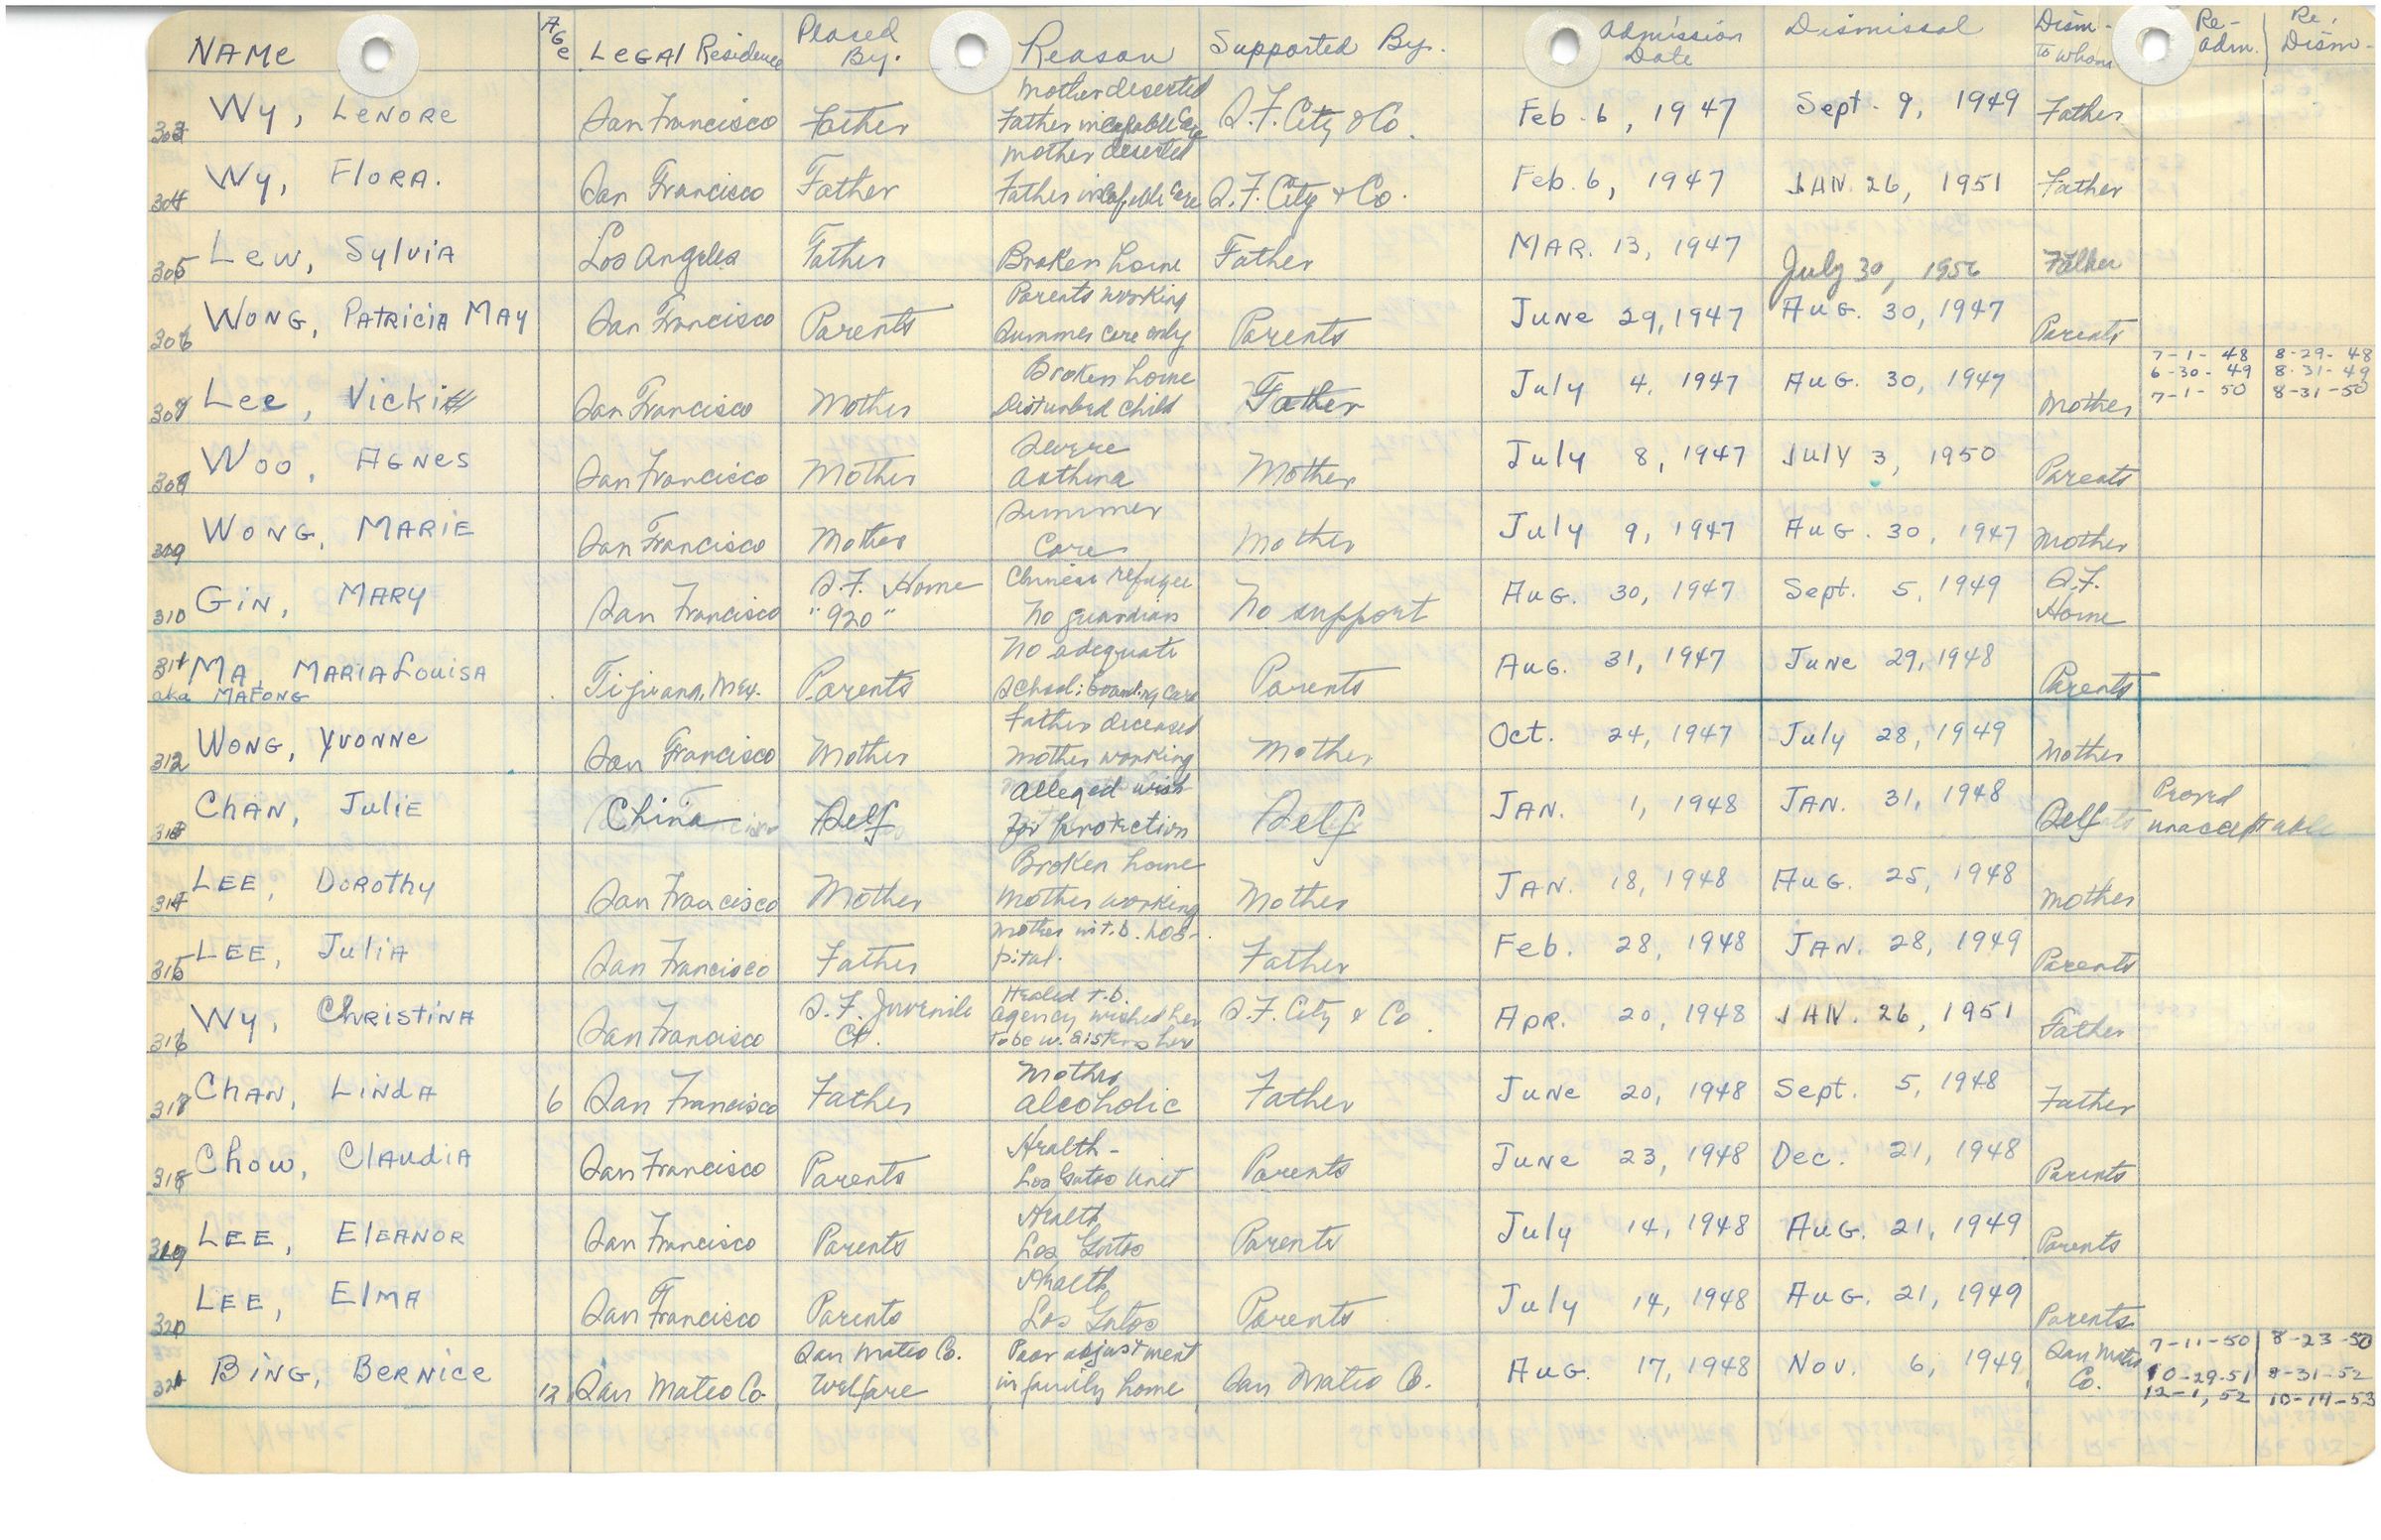 NAME Age Legal Residence Placed By. Reason Supported By. Admission Date Dismissal Dism- To Whom Re-adm. Re. Dism-
303 Wy, Lenore San Francisco Father Mother deserted Father incapable Care S.F. City & Co. Feb. 6, 1947 Sept. 9, 1949 Father
304 Wy, Flora. San Francisco Father Mother deserted Father incapable Care S.F. City & Co. Feb. 6, 1947 JAN. 26, 1951 Father
305 Lew, Sylvia Los Angeles Father Broken home Father MAR. 13, 1947 July 30, 1956 Father
306 Wong, Patricia May San Francisco Parents Parents working Summer care only Parents June 29, 1947 Aug. 30, 1947 Parents
307 Lee, Vicki San Francisco Mother Broken home Disturbed child Father July 4, 1947 Aug. 30, 1947 Mother 7-1-48 8-29-48
6-30-49 8-31-49
7-1-50 8-31-50
308 Woo, Agnes San Francisco Mother Severe Asthma Mother July 8, 1947 July 3, 1950 Parents
309 Wong, Marie San Francisco Mother Summer Care Mother July 9, 1947 Aug. 30, 1947 Mother
310 Gin, Mary San Francisco S.F. Home "920" Chinese refugee No guardian No support Aug. 30, 1947 Sept. 5, 1949 S.F. Home
311 Ma, Maria Louisa Tijuana, Mex. Parents No adequate School; boarding care Parents Aug. 31, 1947 June 29, 1948 Parents
aka MAFONG
312 Wong, Yvonne San Francisco Mother Father deceased Mother working Mother Oct. 24, 1947 July 28, 1949 Mother
313 Chan, Julie China Self Alleged wish for protection Self JAN. 1, 1948 JAN. 31, 1948 Self Proved unacceptable
314 Lee, Dorothy San Francisco Mother Broken home Mother working Mother JAN. 18, 1948 Aug. 25, 1948 Mother
315 Lee, Julia San Francisco Father Mother in t.b. hospital. Father Feb. 28, 1948 JAN. 28, 1949 Parents
316 Wy, Christina San Francisco S.F. Juvenile Ct. Healed t.b. Agency wished her to be w. sisters here S.F. City & Co. Apr. 20, 1948 JAN. 26, 1951 Father
317 Chan, Linda 6 San Francisco Father Mother alcoholic Father June 20, 1948 Sept. 5, 1948 Father
318 Chow, Claudia San Francisco Parents Health- Los Gatos Unit Parents June 23, 1948 Dec. 21, 1948 Parents
319 Lee, Eleanor San Francisco Parents Health Los Gatos Parents July 14, 1948 Aug. 21, 1949 Parents
320 Lee, Elma San Francisco Parents Health Los Gatos Parents July 14, 1948 Aug. 21, 1949 Parents
321 Bing, Bernice 12 San Mateo Co. San Mateo Co. Welfare Poor adjustment in family home San Mateo Co. Aug. 17, 1948 Nov. 6, 1949 San Mateo Co. 7-11-50 8-23-50
10-29-51 8-31-52
12-1, 52 10-14-53